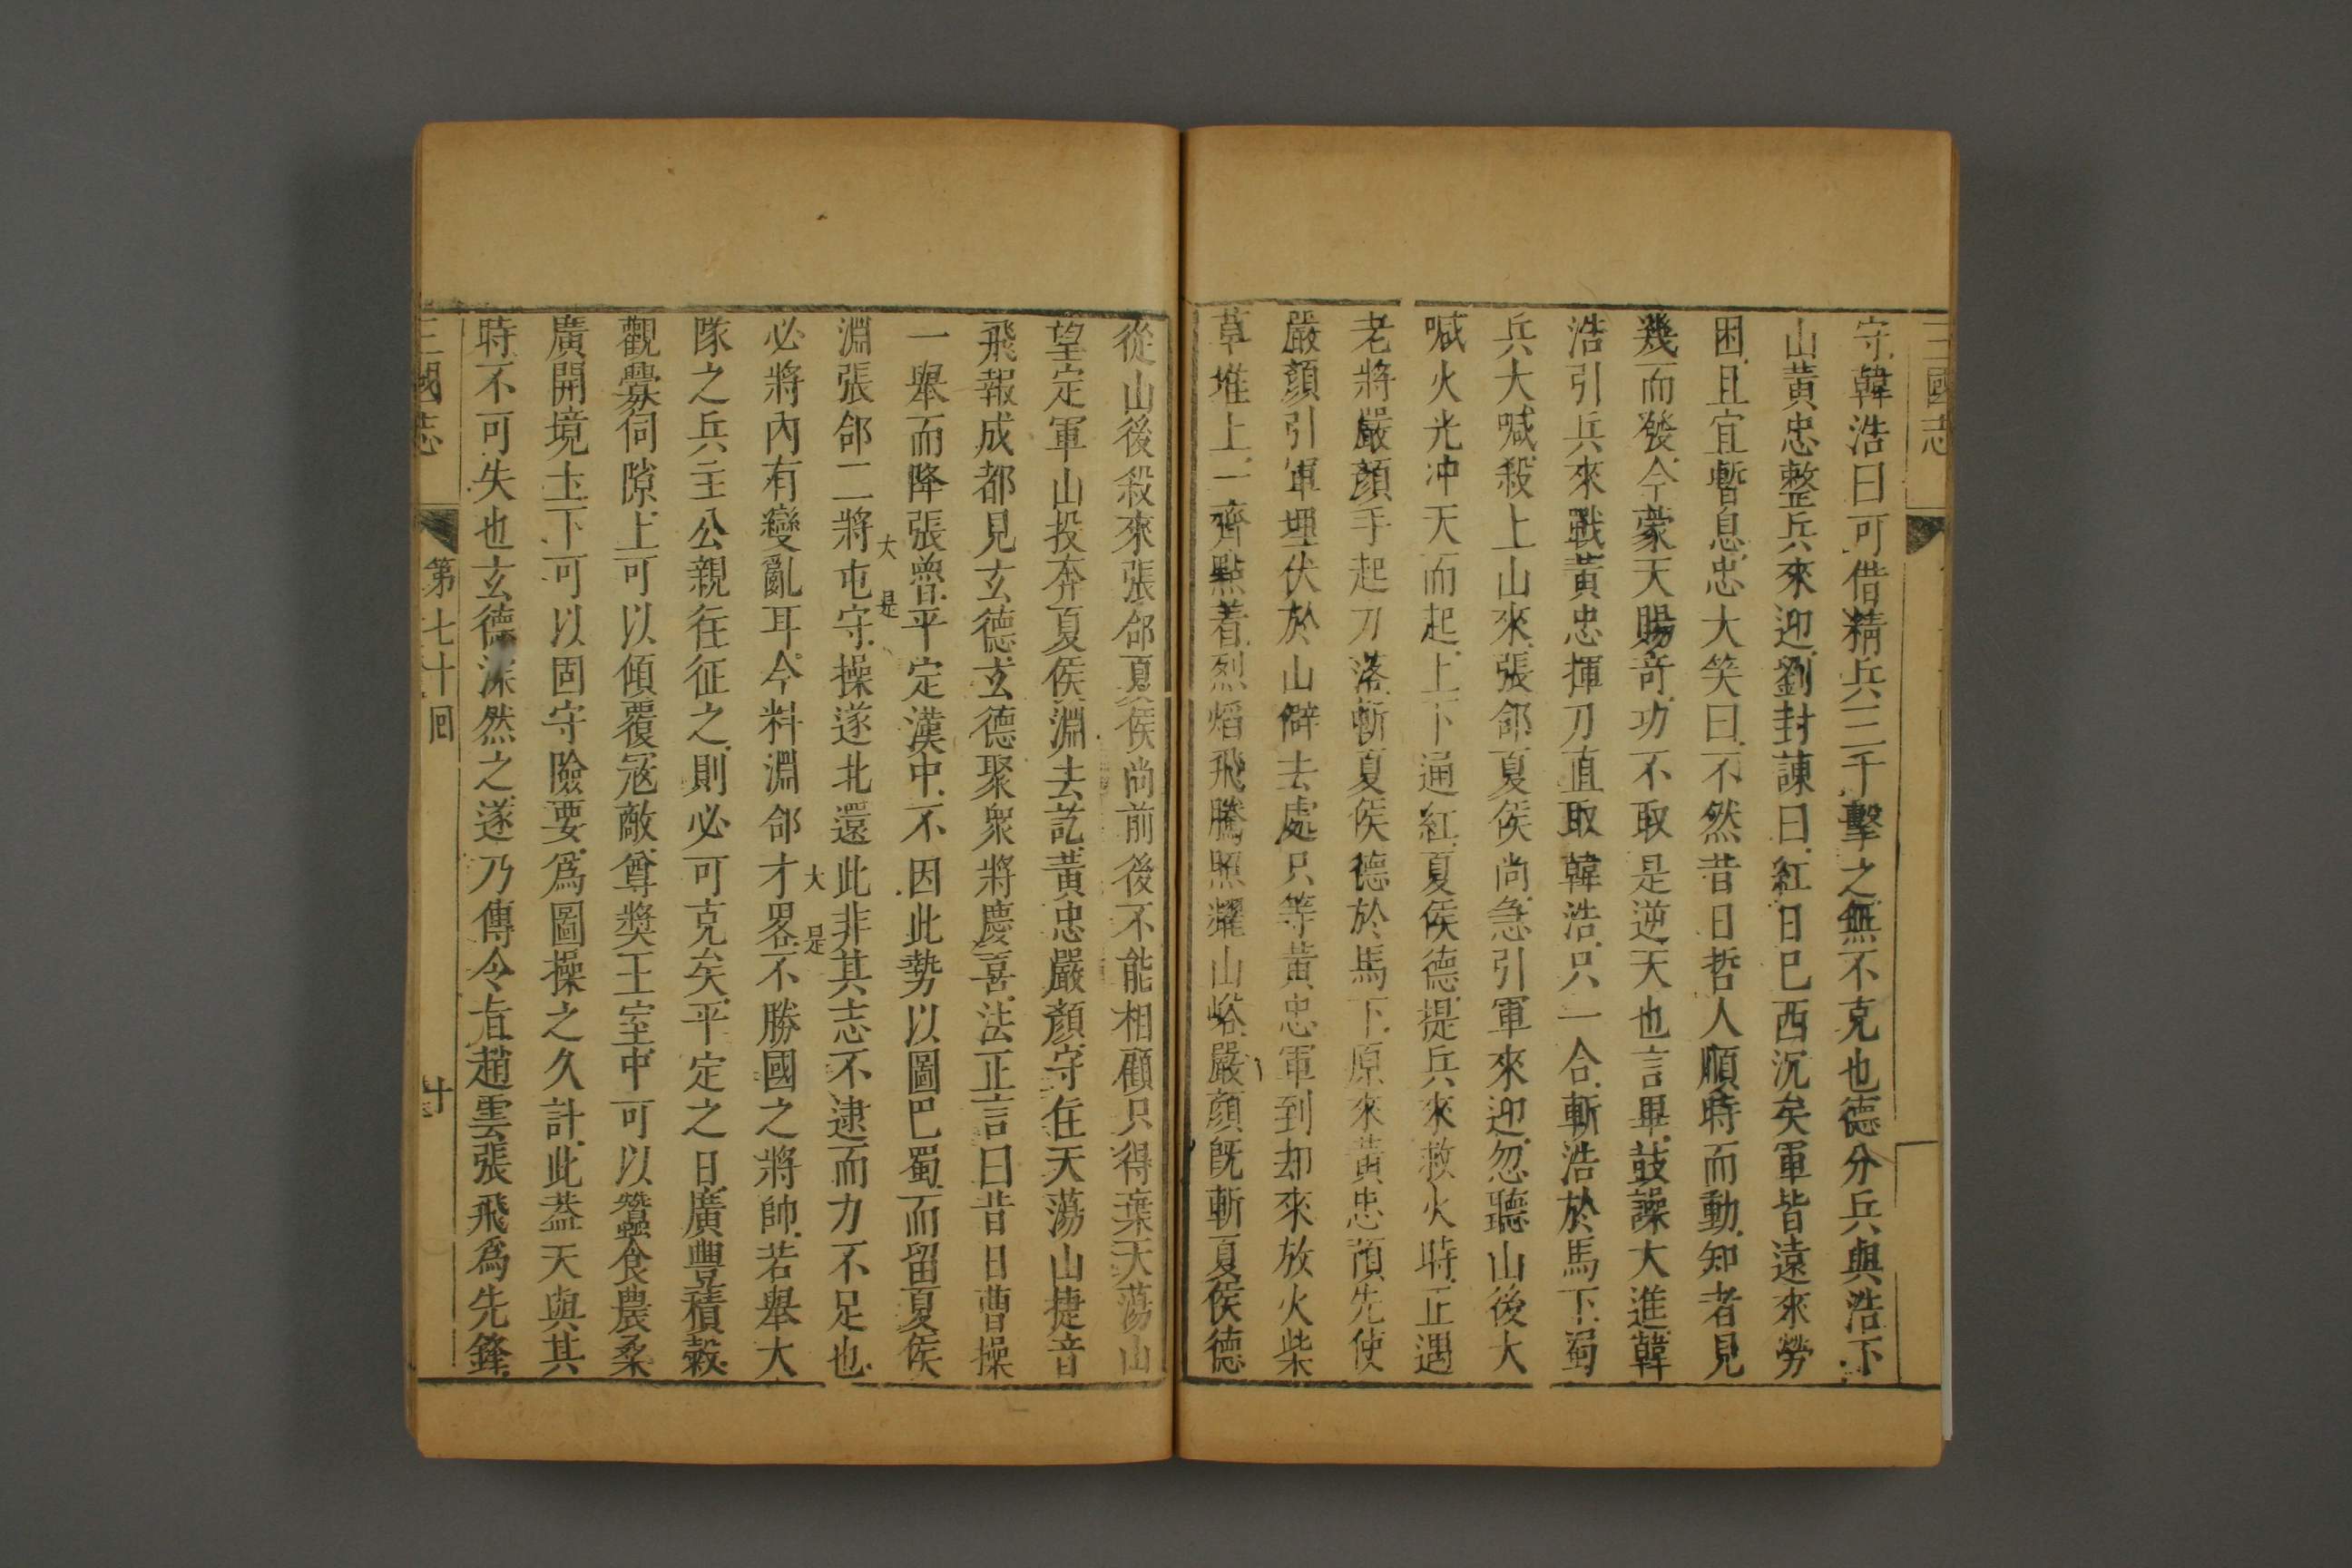 三國志
守韓浩曰可借精兵三千擊之無不克也德分兵與浩下
山黃忠整兵來迎劉封諫曰紅日已西沉矣軍皆遠來勞
困且宜暫息忠大笑曰不然昔日哲人順時而動知者見
幾而發今蒙天賜奇功不取是逆天也言畢鼓譟大進韓
浩引兵來戰黃忠揮刀直取韓浩只一合斬浩於馬下蜀
兵大喊殺上山來張郃夏侯尚急引軍來迎忽聽山後大
喊火光冲天而起上下通紅夏侯德提兵來救火時正遇
老將嚴顏手起刀落斬夏侯德於馬下原來黃忠預先使
嚴顏引軍埋伏於山僻去處只等黃忠軍到却來放火柴
草堆上一齊點着烈熖飛騰照耀山峪嚴顏旣斬夏侯德
從山後殺來張郃夏侯尚前後不能相顧只得棄天蕩山
望定軍山投奔夏侯淵去訖黃忠嚴顏守住天蕩山捷音
飛報成都見玄德玄德聚衆將慶喜法正言曰昔日曹操
一舉而降張魯平定漢中不因此勢以圖巴蜀而留夏侯
大是
淵張郃二將屯守操遂北還此非其志不逮而力不足也
大是
必將內有變亂耳今料淵郃才畧不勝國之將帥若舉大
隊之兵主公親往征之則必可克矣平定之日廣豐積穀
觀釁伺隙上可以傾覆寇敵尊奬王室中可以蠶食農桑
廣開境土下可以固守險要爲圖操之久計此葢天與其
時不可失也玄德深然之遂乃傳令旨趙雲張飛爲先鋒
三國志
第七十囘
十